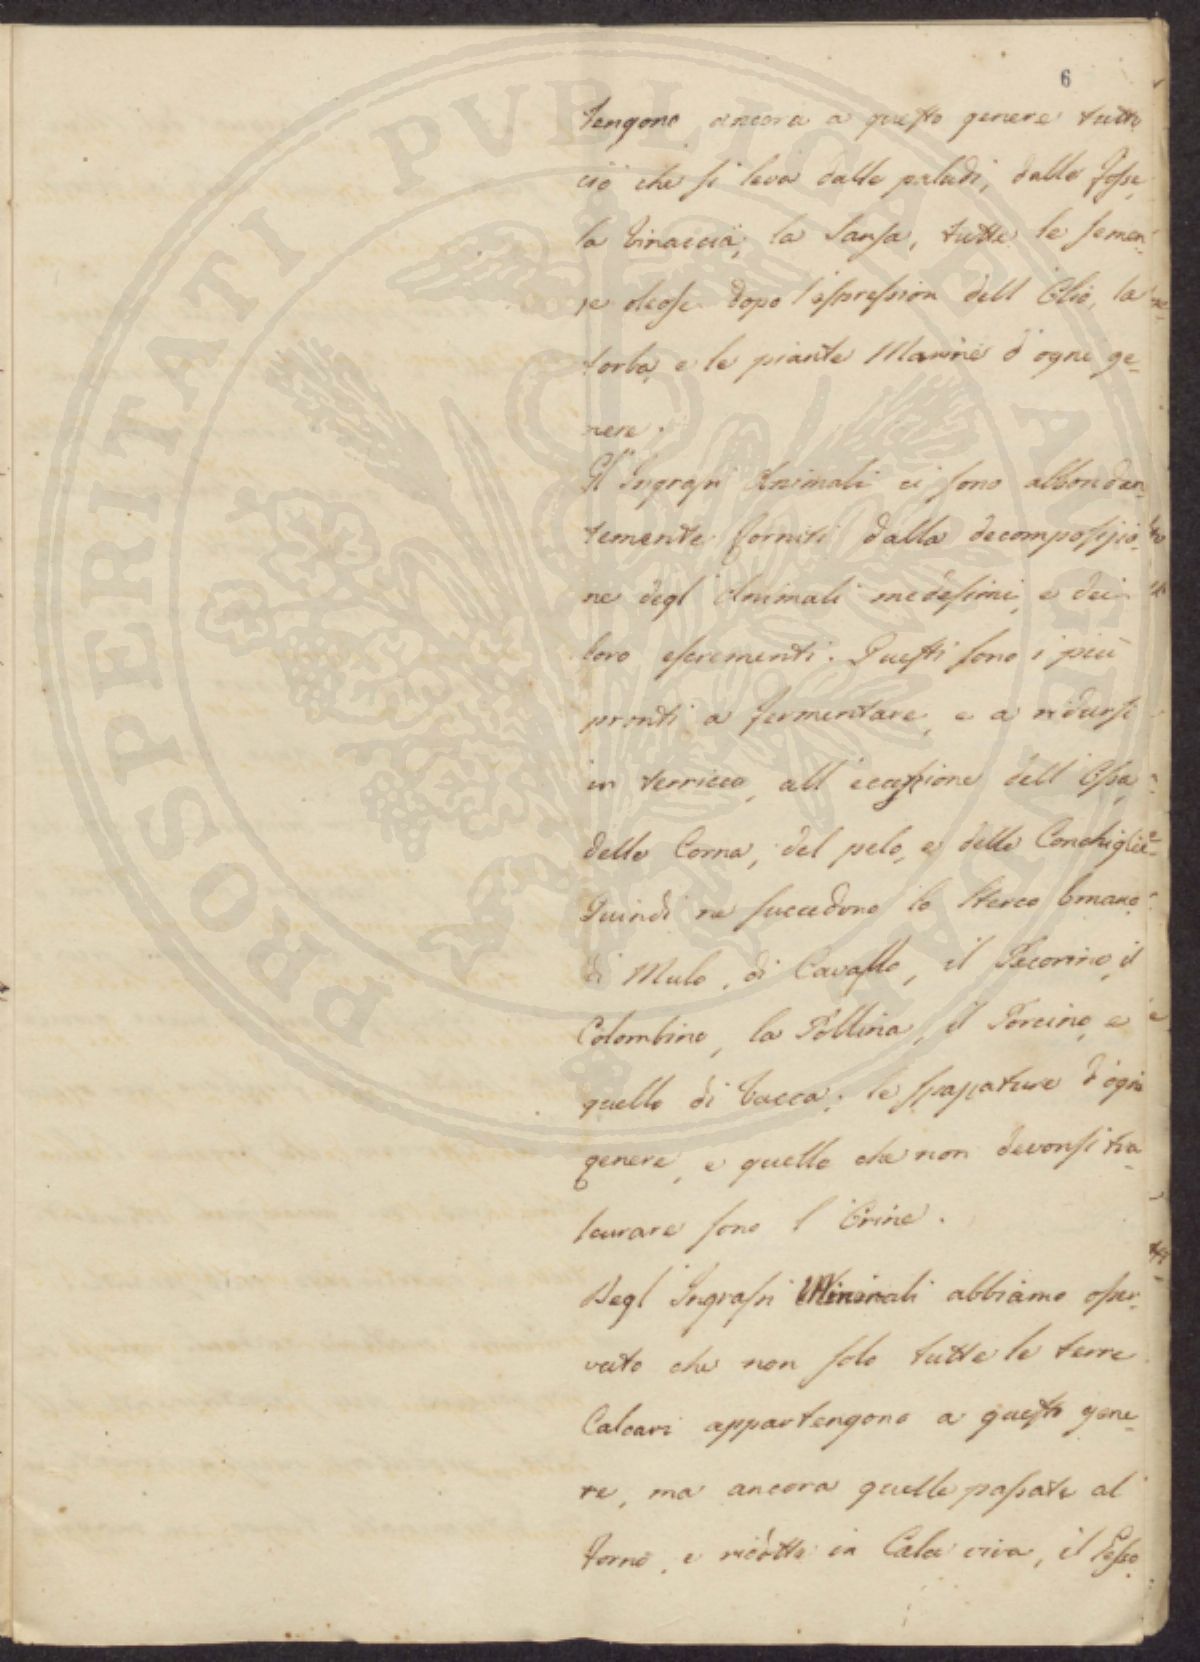 6
tengono ancora a questo genere tutto
ciò che si leva dalle paludi, dalle fosse,
la Vinaccia, la Sansa, tutte le semen-
ze oleose dopo l'espression dell'Olio, la
torba, e le piante Marine d'ogni ge-
nere.
Gl'Ingrassi Animali ci sono abbondan-
temente forniti dalla decomposizio-
ne degl'Animali medesimi, e dei
loro escrementi. Questi sono i più
pronti a fermentare, e a ridursi
in terriccio, all'eccezione dell'Ossa,
delle Corna, del pelo, e delle Conchiglie.
Quindi ne succedono lo Sterco Umano,
di Mulo, di Cavallo, il Pecorino, il
Colombino, la Pollina, il Porcino, e
quello di Vacca; le spazzature d'ogni
genere, e quello che non devonsi tra-
scurare sono l'Urine.
Degl'Ingrassi Minerali abbiamo osser-
vato che non solo tutte le terre
Calcari appartengono a questo gene-
re, ma ancora quelle passate al
forno, e ridotte in Calce viva, il Gesso,
PROSPERITATI PVBLICAE AVGENDAE